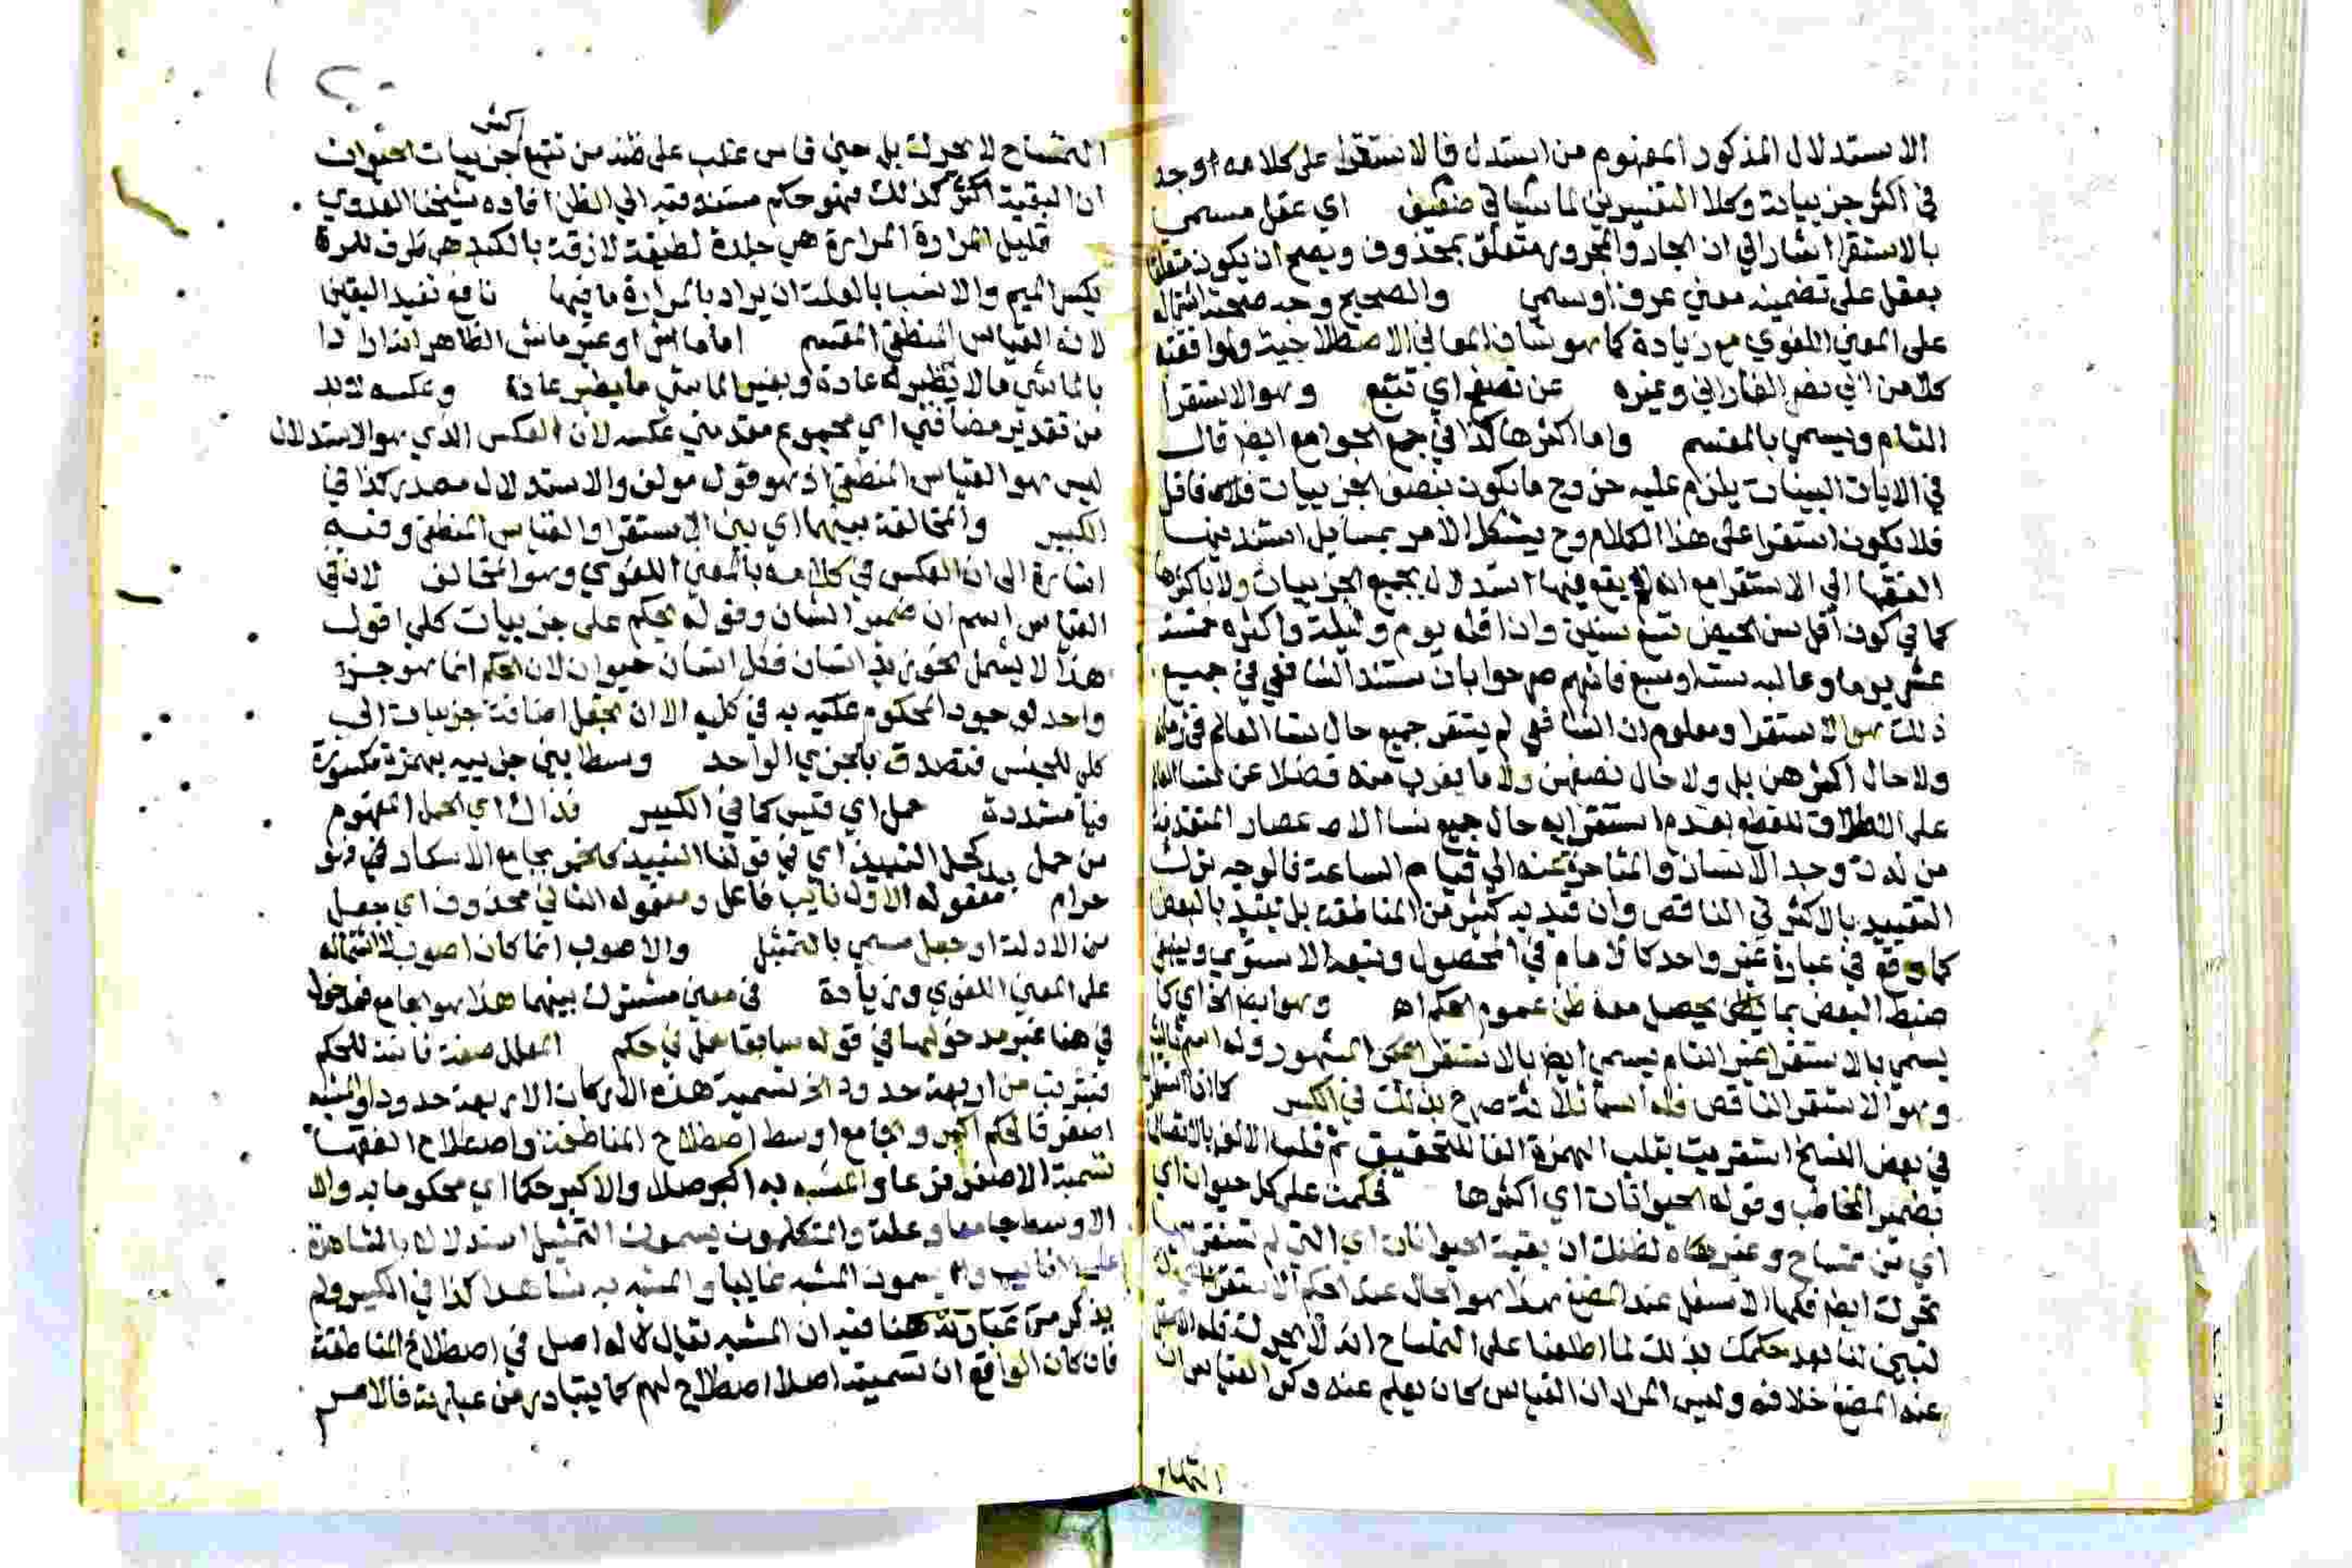 الاستدلال المذكور المفهوم من استدل فالاستقرا على كلامه اوجد
في اكثر جزيياته وكلا التفسيرين لما شيا في ضعيف اي عقل مسمى
بالاستقرا اشار الى ان الجار والمجرور متعلق بمحذوف ويصح ان يكون متعلقا
بعقل على تضمينه معنى عرف او سمي والصحيح وجه صحته اشتماله
على المعنى اللغوي مع زيادة كما هو شان المعاني الاصطلاحية وموافقته
كلام ابي نصر الفارابي وغيره عن تصفح اي تتبع وهو الاستقرا
التام ويسمى بالمقسم واما اكثرها كذا في جمع الجوامع ايضا قال
في الايات البينات يلزم عليه خروج ما يكون بنصف الجزييات فاقل
فلا يكون استقرا على هذا الكلام وح يشكل الامر بمسايل استند فيها
الفقها الى الاستقرا مع انه لم يقع فيها استدلال بجميع الجزييات ولا باكثرها
كما في كون اقل سن الحيض تسع سنين واذا قله يوم وليلة واكثره خمسة
عشر يوما وغالبه ستة او سبع فانهم صرحوا بان مستند الشافعي في جميع
ذلك هو الاستقرا ومعلوم ان الشافعي لم يستقر جميع حال نسا العالم في زمنه
ولا حال اكثرهن بل ولا حال نصفهن ولا ما يقرب منه فضلا عن نسا العالم
على الاطلاق للقطع بعدم استقرايه حال جميع نسا الاعصار المتقدمة
من لدن وجد الانسان والمتاخرة عنه الى قيام الساعة فالوجه ترك
التقييد بالاكثر في الناقص وان قيد به كثير من المناطقة بل يقيد بالبعض
كما وقع في عبارة غير واحد كالامام في المحصول وتبعه الاسنوي وينبغي
ضبط البعض بما يحصل معه ظن عموم الحكم اه وهو ايضا الخ اي كما
يسمى بالاستقرا غير التام يسمى ايضا بالاستقرا المشهور وله اسم ثالث
وهو الاستقرا الناقص فله اسما ثلاثة صرح بذلك في الكبير
في بعض النسخ استقريت بقلب الهمزة الفا للتخفيف ثم قلب الالف
بضمير المخاطب وقوله الحيوانات اي اكثرها فحكمت على كل حيوان اي
اي من تمساح وغيره لظنك ان بقية الحيوانات اي التي لم تستقر
تحرك ايضا فكها الاسفل عند المضغ هذا هو الحال عند الحكم
تبين لنا بعد حكمك بذلك لما اطلعنا على التمساح انه لا يحرك فكه الاسفل
عند المضغ خلافه وليس المراد ان القياس كان يعلم عند ذكر القياس ان
التمساح
اكثر
التمساح لا يحرك بل حين قاس غلب على ظنه من تتبع جزييات الحيوان
ان البقية كذلك فهو حكم مستند فيه الى الظن افاده شيخنا العدوي
قليل المرارة المرارة هي جلدة لطيفة لازقة بالكبد هي ظرف للمرة
بكسر الميم والانسب بالعلة ان يراد بالمرارة ما فيها نافع تفيد اليقين
لانه القياس المنطقي المقسم اما ماش او غير ماش الظاهر انه اراد
بالماشي ما لا يطير عادة وبغير الماشي ما يطير عادة وعكسه لابد
من تقدير مضافين اي مجموع مقدمتي عكسه لان العكس الذي هو الاستدلال
ليس هو القياس المنطقي اذ هو قول مولف والاستدلال مصدر كذا في
الكبير والمخالفة بينهما اي بين الاستقرا والقياس المنطقي وفيه
اشارة الى ان العكس في كلامه بالمعنى اللغوي وهو التخالف لان في
القياس اسم ان ضمير الشان وقوله يحكم على جزييات كلي اقول
هذا لا يشمل نحو زيد انسان فكل انسان حيوان لان الحكم انما هو جزء
واحد لوجود المحكوم عليه به في كليه الا ان يجعل اضافة جزييات الى
كلي للجنس فتصدق بالجزي الواحد وسطا بين جزييه بهمزة مكسورة
فيا مشددة حمل اي قيس كما في الكبير فذاك اي الحمل المفهوم
من حمل كحمل النبيذ اي في قولنا النبيذ كالخمر بجامع الاسكار فهو
حرام مفعوله الاول نايب فاعل ومفعوله الثاني محذوف اي جعل
من الادلة او جعل مسمى بالتمثيل والاصوب انما كان اصوب لاشتماله
على المعنى اللغوي وزيادة في معنى مشترك بينهما هذا هو الجامع فمدخول
في هنا غير مدخولها في قوله سابقا على في حكم المعلل صفة ثانية للحكم
فتتركب من اربعة حدود الخ تسمية هذه الاركان الاربعة حدودا والمشبه
اصغر فالحكم اكبر والجامع اوسط اصطلاح المناطقة واصطلاح الفقها
تسمية الاصغر فرعا والمشبه به اصلا والاكبر حكما اي محكوما به وال
الاوسط جامعا وعلة والمتكلمون يسمون التمثيل استدلالا بالشاهد
على الغايب ويسمون المشبه غايبا والمشبه به شاهدا كذا في الكبير ولم
يذكر من عبارته هنا فيه ان المشبه يقال له اصل في اصطلاح المناطقة
فان كان الواقع ان تسميته اصلا اصطلاح لهم كما يتبادر من عبارته فالامر